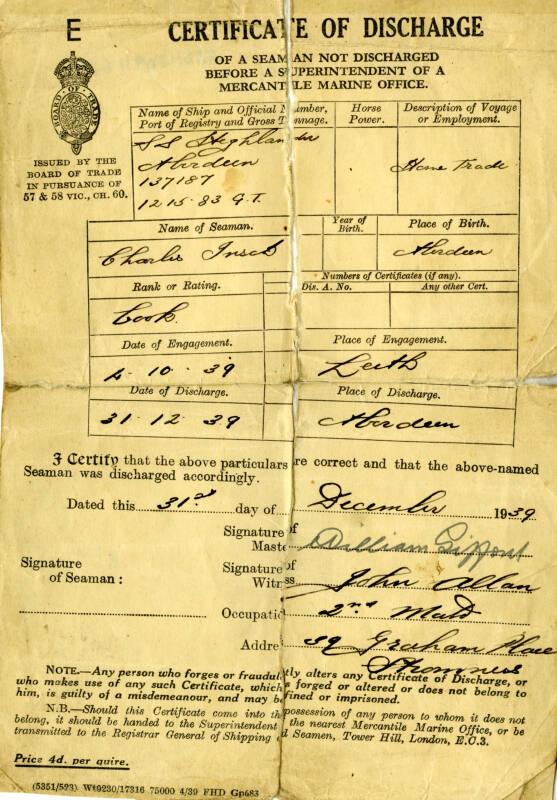 E
CERTIFICATE OF DISCHARGE
OF A SEAMAN NOT DISCHARGED
BEFORE A SUPERINTENDENT OF A
MERCANTILE MARINE OFFICE.
BOARD OF TRADE
ISSUED BY THE
BOARD OF TRADE
IN PURSUANCE OF
57 & 58 VIC., CH. 60.
Name of Ship and Official Number, Horse Description of Voyage
Port of Registry and Gross Tonnage. Power. or Employment.
SS Highlander
Aberdeen Home Trade
137187
1215.83 G.T.
Name of Seaman. Year of Birth. Place of Birth.
Charles Insch Aberdeen
Numbers of Certificates (if any).
Rank or Rating. Dis. A. No. Any other Cert.
Cook.
Date of Engagement. Place of Engagement.
4.10.39 Leith
Date of Discharge. Place of Discharge.
31.12.39 Aberdeen
I Certify that the above particulars are correct and that the above-named
Seaman was discharged accordingly.
Dated this 31st day of December 1939
Signature of
Master William
Signature Signature of
of Seaman: Witness John Allan
Occupation 2nd Mate
Address 39 Graham Place
Stromness
NOTE.—Any person who forges or fraudulently alters any Certificate of Discharge, or
who makes use of any such Certificate, which is forged or altered or does not belong to
him, is guilty of a misdemeanour, and may be fined or imprisoned.
N.B.—Should this Certificate come into the possession of any person to whom it does not
belong, it should be handed to the Superintendent of the nearest Mercantile Marine Office, or be
transmitted to the Registrar General of Shipping and Seamen, Tower Hill, London, E.C.3.
Price 4d. per quire.
(5351/593) Wt9230/17316 75000 4/39 FHD Gp683